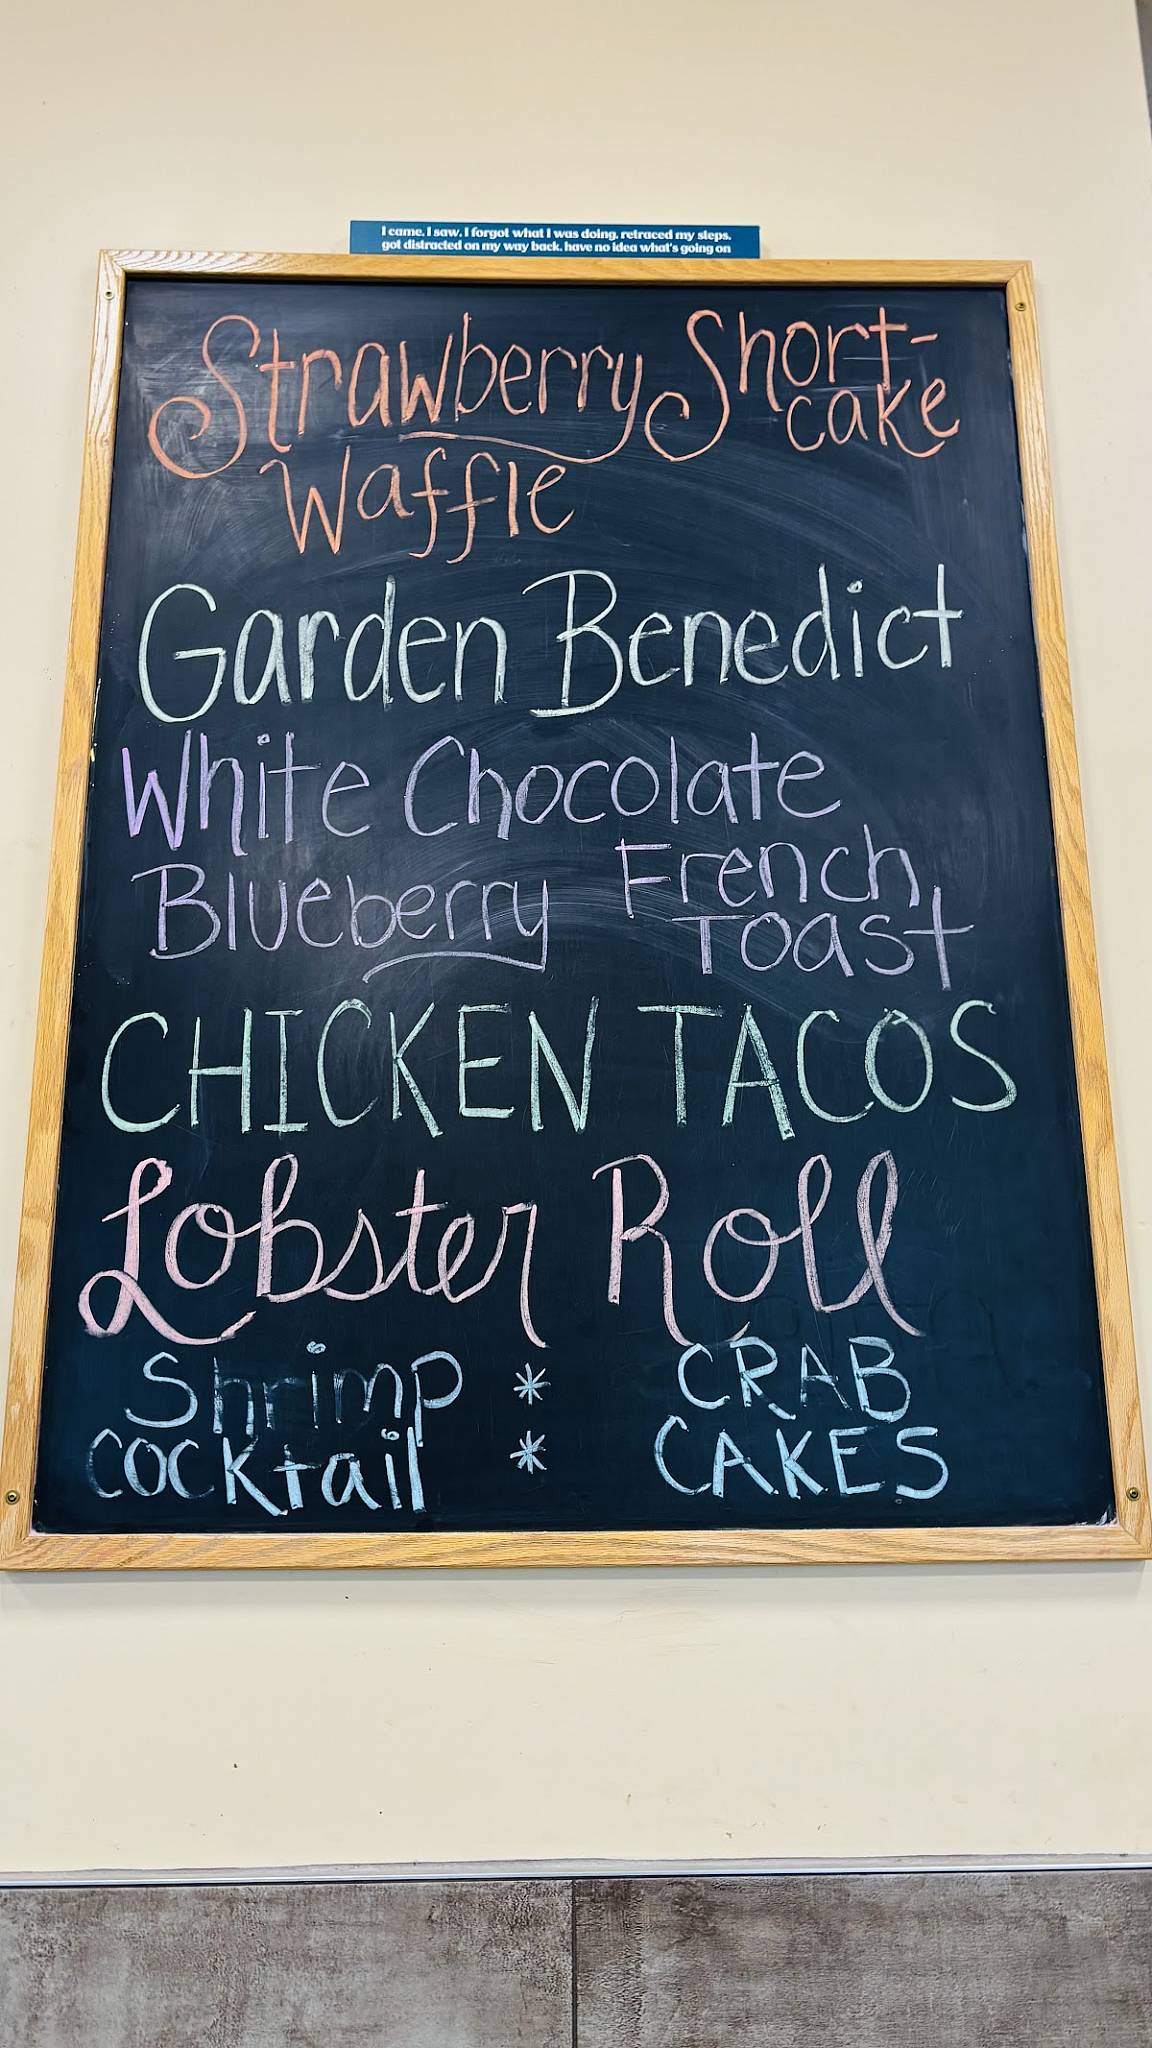 I came. I saw. I forgot what I was doing. retraced my steps.
got distracted on my way back. have no idea what's going on
Strawberry Short-
cake
Waffle
Garden Benedict
White Chocolate
Blueberry French
Toast
CHICKEN TACOS
Lobster Roll
Shrimp * CRAB
cocktail * CAKES